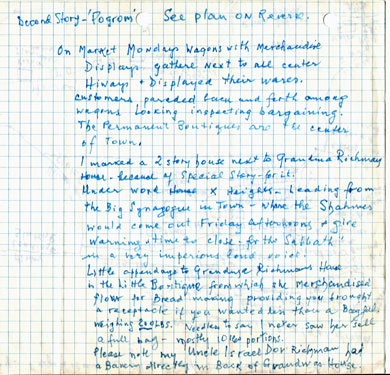 Second Story - 'Pogrom' See plan on Reverse.
On Market Mondays Wagons with Merchandise
Displays gather next to all center
Hiways + Displayed their wares.
Customers paraded back and forth among
wagons Looking inspecting bargaining.
The Permanent Boutiques are the center
of Town.
I marked a 2 story house next to Grandma Richman
House - because of Special Story - for it.
Under word House X Heights - Leading from
the Big Synagogue in Town - where the Shahmes
would come out Friday afternoons + give
warning + time to close - for the Sabbath
in a very imperious loud voice!
Little appendage to Grandma Richmans House
is the Little Boutique from which she Merchandised
flour for Bread making providing you brought
a receptacle if you wanted less than a Bagful
weighing 200 LBS. Needless to say I never saw her sell
a full bag - mostly 10 lb portions.
Please note my Uncle Israel Dov Richman had
a Bakery directly in Back of Grandma's House.